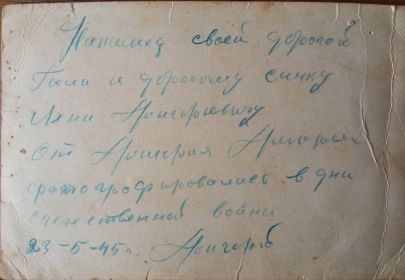 На память своей дорогой
Гали и дорогому синку
Лёни Григорьевичу
От Григория
фотографировались в дни
отечественной войни
23-5-45 г.